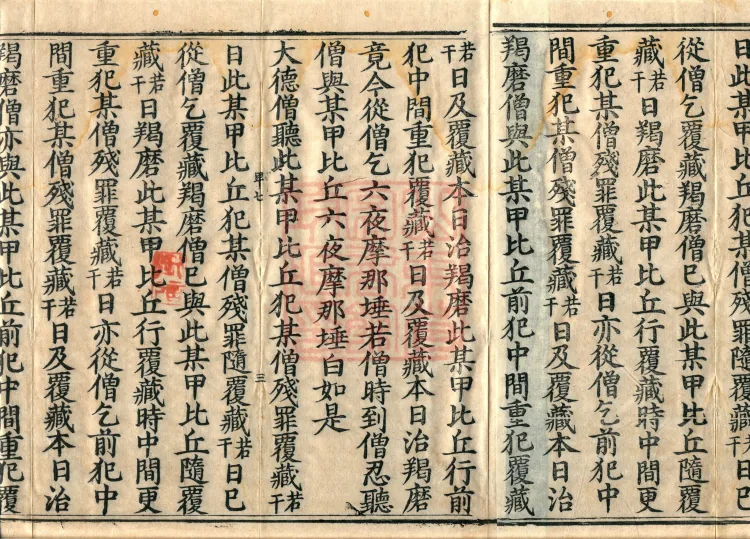 日此某甲比丘犯某僧殘
從僧乞覆藏羯磨僧已與此某甲比丘隨覆
藏若干日羯磨此某甲比丘行覆藏時中間更
重犯某僧殘罪覆藏若干日亦從僧乞前犯中
間重犯某僧殘罪覆藏若干日及覆藏本日治
羯磨僧與此某甲比丘前犯中間重犯覆藏
若干日及覆藏本日治羯磨此某甲比丘行前
犯中間重犯覆藏若干日及覆藏本日治羯磨
竟今從僧乞六夜摩那埵若僧時到僧忍聽
僧與某甲比丘六夜摩那埵白如是
大德僧聽此某甲比丘犯某僧殘罪覆藏若干
卑七 三
日此某甲比丘犯某僧殘罪隨覆藏若干日已
從僧乞覆藏羯磨僧已與此某甲比丘隨覆
藏若干日羯磨此某甲比丘行覆藏時中間更
重犯某僧殘罪覆藏若干日亦從僧乞前犯中
間重犯某僧殘罪覆藏若干日及覆藏本日治
羯磨僧亦與此某甲比丘前犯中間重犯覆